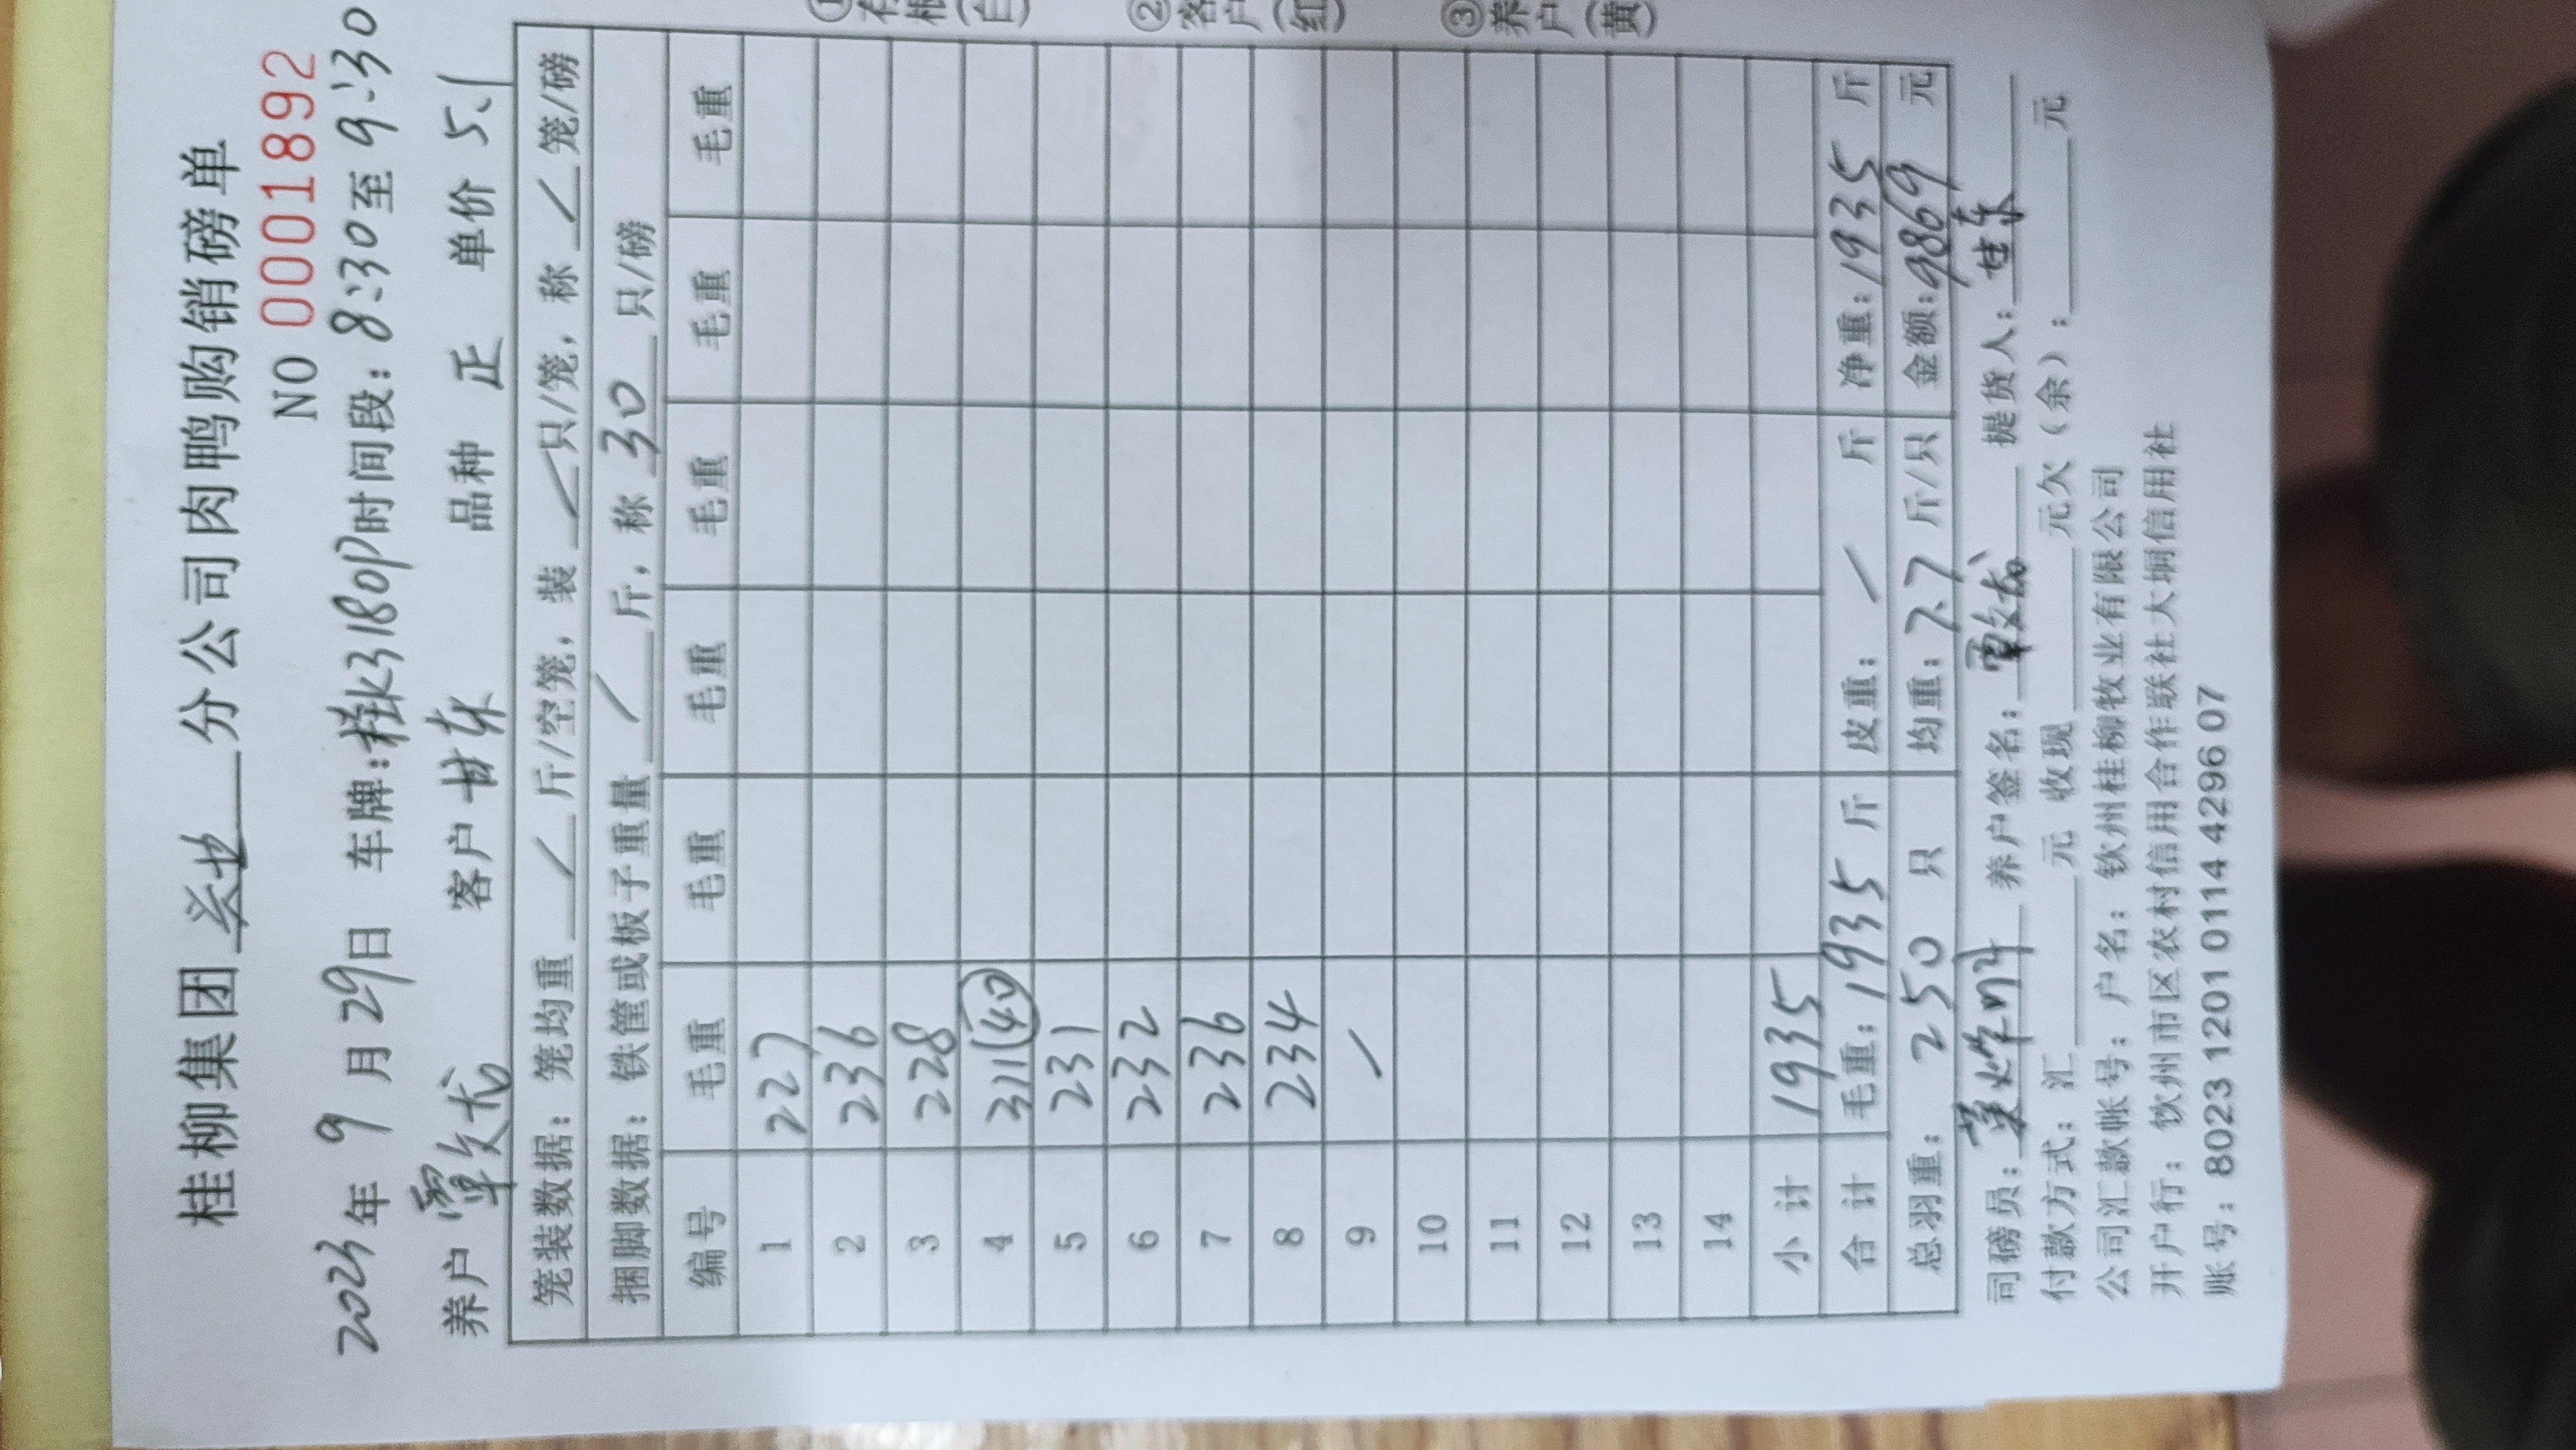 桂柳集团 分公司肉鸭购销磅单
NO 0001892
2023年 9 月 29日 车牌:桂K3180P时间段:8:30至 9:30
养户 覃文龙 客户 甘东 品种 正 单价 5.1
笼装数据: 笼均重 / 斤/空笼, 装 / 只/笼, 称 / 笼/磅
捆脚数据: 铁筐或板子重量 / 斤, 称 30 只/磅
编号 毛重 毛重 毛重 毛重 毛重 毛重
1 227
2 236
3 228
4 311(40)
5 231
6 232
7 236
8 234
9 /
10
11
12
13
14
小计 1935
合计 毛重: 1935 斤 皮重: / 斤 净重: 1935 斤
总羽重: 250 只 均重: 7.7 斤/只 金额: 9869 元
司磅员: 养户签名: 覃文龙 提货人: 甘东
付款方式: 汇 元 收现 元欠(余): 元
公司汇款帐号: 户名: 钦州桂柳牧业有限公司
开户行: 钦州市区农村信用合作联社大垌信用社
账号: 8023 1201 0114 4296 07
①存根(白)
②客户(红)
③养户(黄)